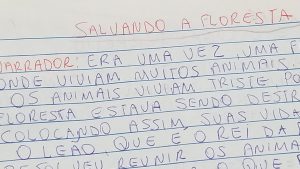 SALVANDO A FLORESTA
NARRADOR: ERA UMA VEZ, UMA F
ONDE VIVIAM MUITOS ANIMAIS.
OS ANIMAIS VIVIAM TRISTE PO
FLORESTA ESTAVA SENDO DESTR
COLOCANDO ASSIM, SUAS VIDA
O LEÃO, QUE É O REI DA
RESOLVEU REUNIR OS ANIMA
O QUE